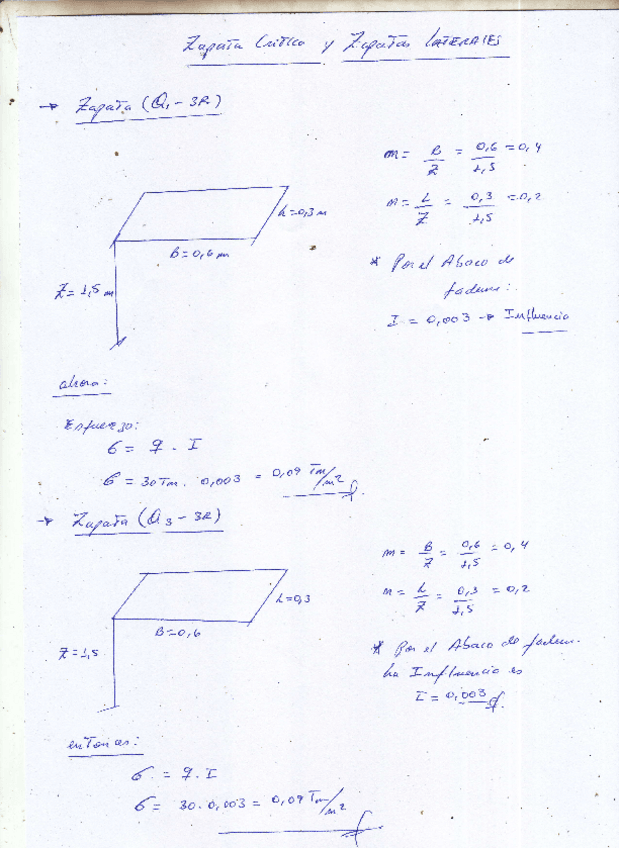 Zapata Critica y Zapatas Laterales
→ Zapata (Q1 - 3R)
m = B/Z = 0,6/1,5 = 0,4
n = L/Z = 0,3/1,5 = 0,2
L = 0,3 m
B = 0,6 m
Z = 1,5 m
* Por el Abaco de
fadum:
I = 0,003 → Influencia
ahora:
Esfuerzo:
σ = q . I
σ = 30 Tm . 0,003 = 0,09 Tm/m2
→ Zapata (Q3 - 3R)
m = B/Z = 0,6/1,5 = 0,4
n = L/Z = 0,3/1,5 = 0,2
L = 0,3
B = 0,6
Z = 1,5
* Por el Abaco de fadum.
la Influencia es
I = 0,003
entonces:
σ = q . I
σ = 30 . 0,003 = 0,09 Tm/m2